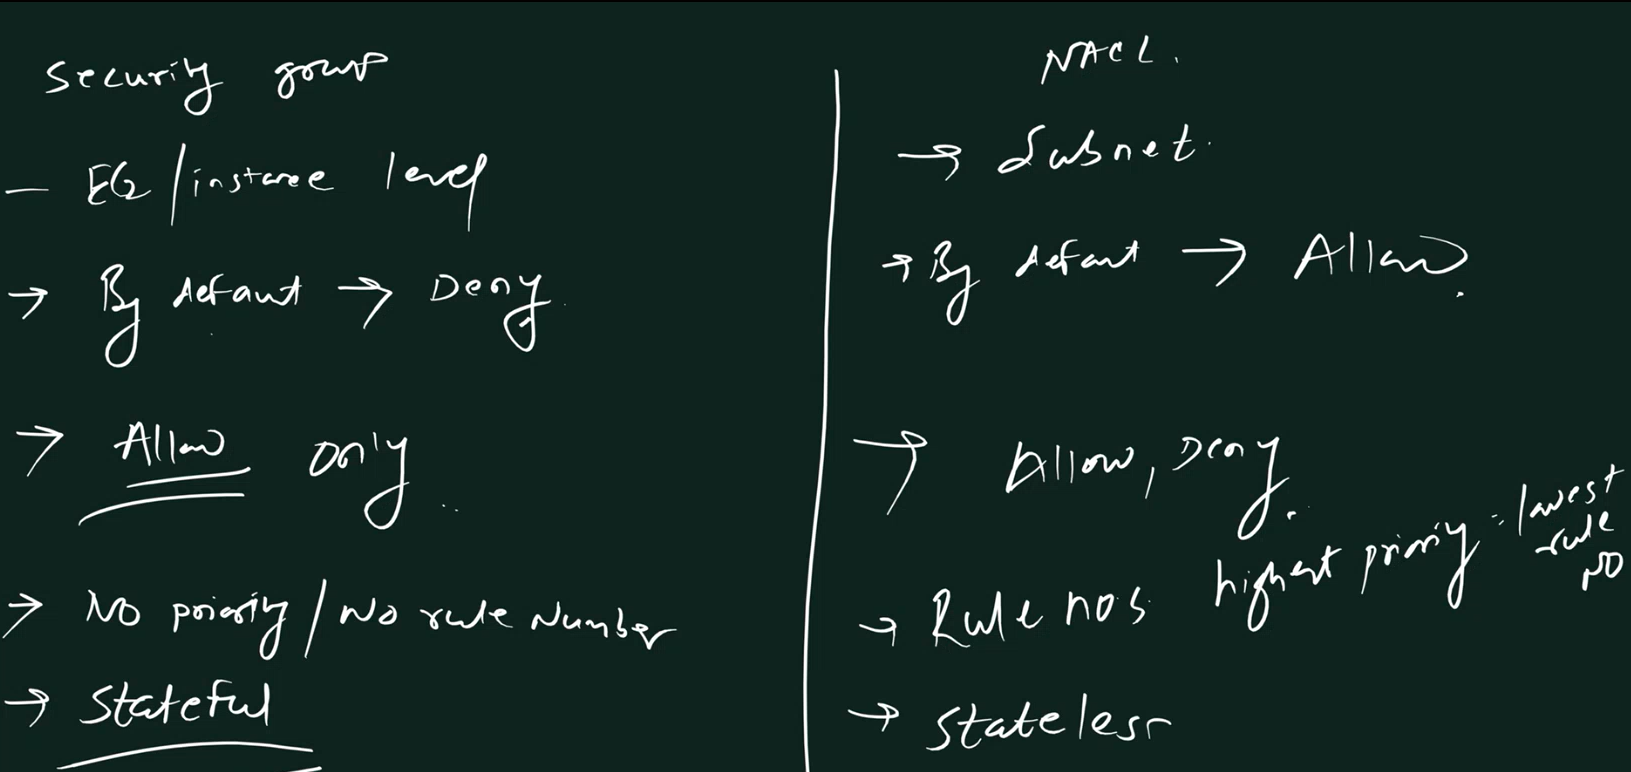 Security group
— EC2/instance level
→ By default → Deny.
→ Allow only..
→ No priority/No rule Number
→ Stateful
NACL.
→ Subnet.
→ By default → Allow.
→ Allow, Deny.
→ Rule nos highest priority = lowest
rule
NO
→ Stateless